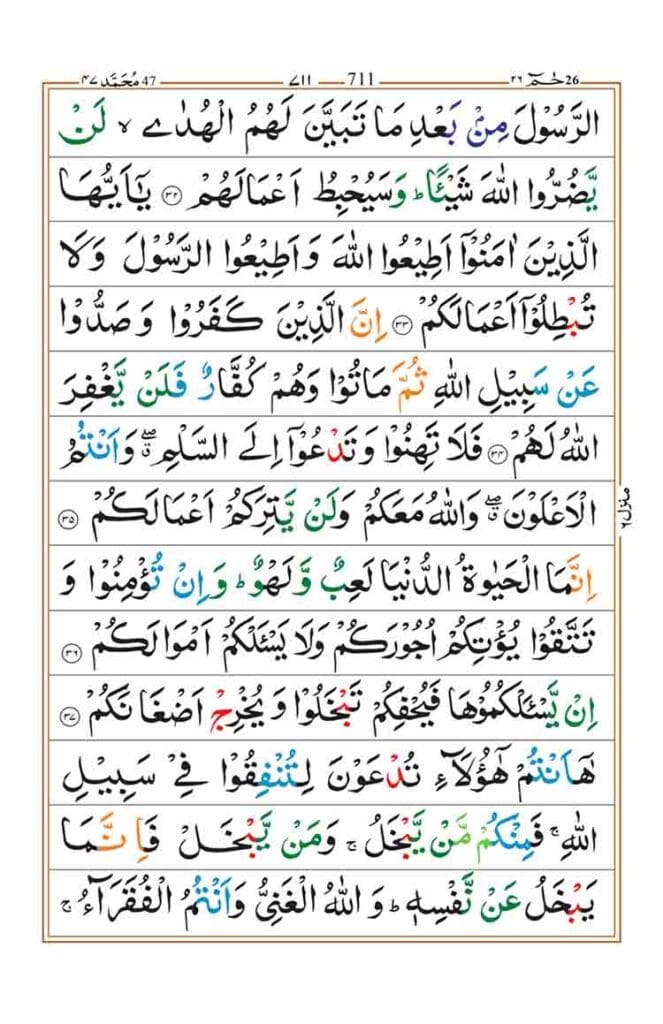 47 مُحَمَّد ۴۷ ۷۱۱ 711 26 حٰمٓ ۲۶
الرَّسُوْلَ مِنْۢ بَعْدِ مَا تَبَيَّنَ لَهُمُ الْهُدٰى ۙ لَنْ
يَّضُرُّوا اللّٰهَ شَيْـًٔا ؕ وَسَيُحْبِطُ اَعْمَالَهُمْ ﴿۳۲﴾ يٰۤاَيُّهَا
الَّذِيْنَ اٰمَنُوْۤا اَطِيْعُوا اللّٰهَ وَاَطِيْعُوا الرَّسُوْلَ وَلَا
تُبْطِلُوْۤا اَعْمَالَكُمْ ﴿۳۳﴾ اِنَّ الَّذِيْنَ كَفَرُوْا وَصَدُّوْا
عَنْ سَبِيْلِ اللّٰهِ ثُمَّ مَاتُوْا وَهُمْ كُفَّارٌ فَلَنْ يَّغْفِرَ
اللّٰهُ لَهُمْ ﴿۳۴﴾ فَلَا تَهِنُوْا وَتَدْعُوْۤا اِلَى السَّلْمِ ۖۗ وَاَنْتُمُ
الْاَعْلَوْنَ ۖۗ وَاللّٰهُ مَعَكُمْ وَلَنْ يَّتِرَكُمْ اَعْمَالَكُمْ ﴿۳۵﴾
اِنَّمَا الْحَيٰوةُ الدُّنْيَا لَعِبٌ وَّلَهْوٌ ؕ وَاِنْ تُؤْمِنُوْا وَ
تَتَّقُوْا يُؤْتِكُمْ اُجُوْرَكُمْ وَلَا يَسْـَٔلْكُمْ اَمْوَالَكُمْ ﴿۳۶﴾
اِنْ يَّسْـَٔلْكُمُوْهَا فَيُحْفِكُمْ تَبْخَلُوْا وَيُخْرِجْ اَضْغَانَكُمْ ﴿۳۷﴾
هٰۤاَنْتُمْ هٰٓؤُلَآءِ تُدْعَوْنَ لِتُنْفِقُوْا فِيْ سَبِيْلِ
اللّٰهِ ۚ فَمِنْكُمْ مَّنْ يَّبْخَلُ ۚ وَمَنْ يَّبْخَلْ فَاِنَّمَا
يَبْخَلُ عَنْ نَّفْسِهٖ ؕ وَاللّٰهُ الْغَنِيُّ وَاَنْتُمُ الْفُقَرَآءُ ۚ
منزل ۶